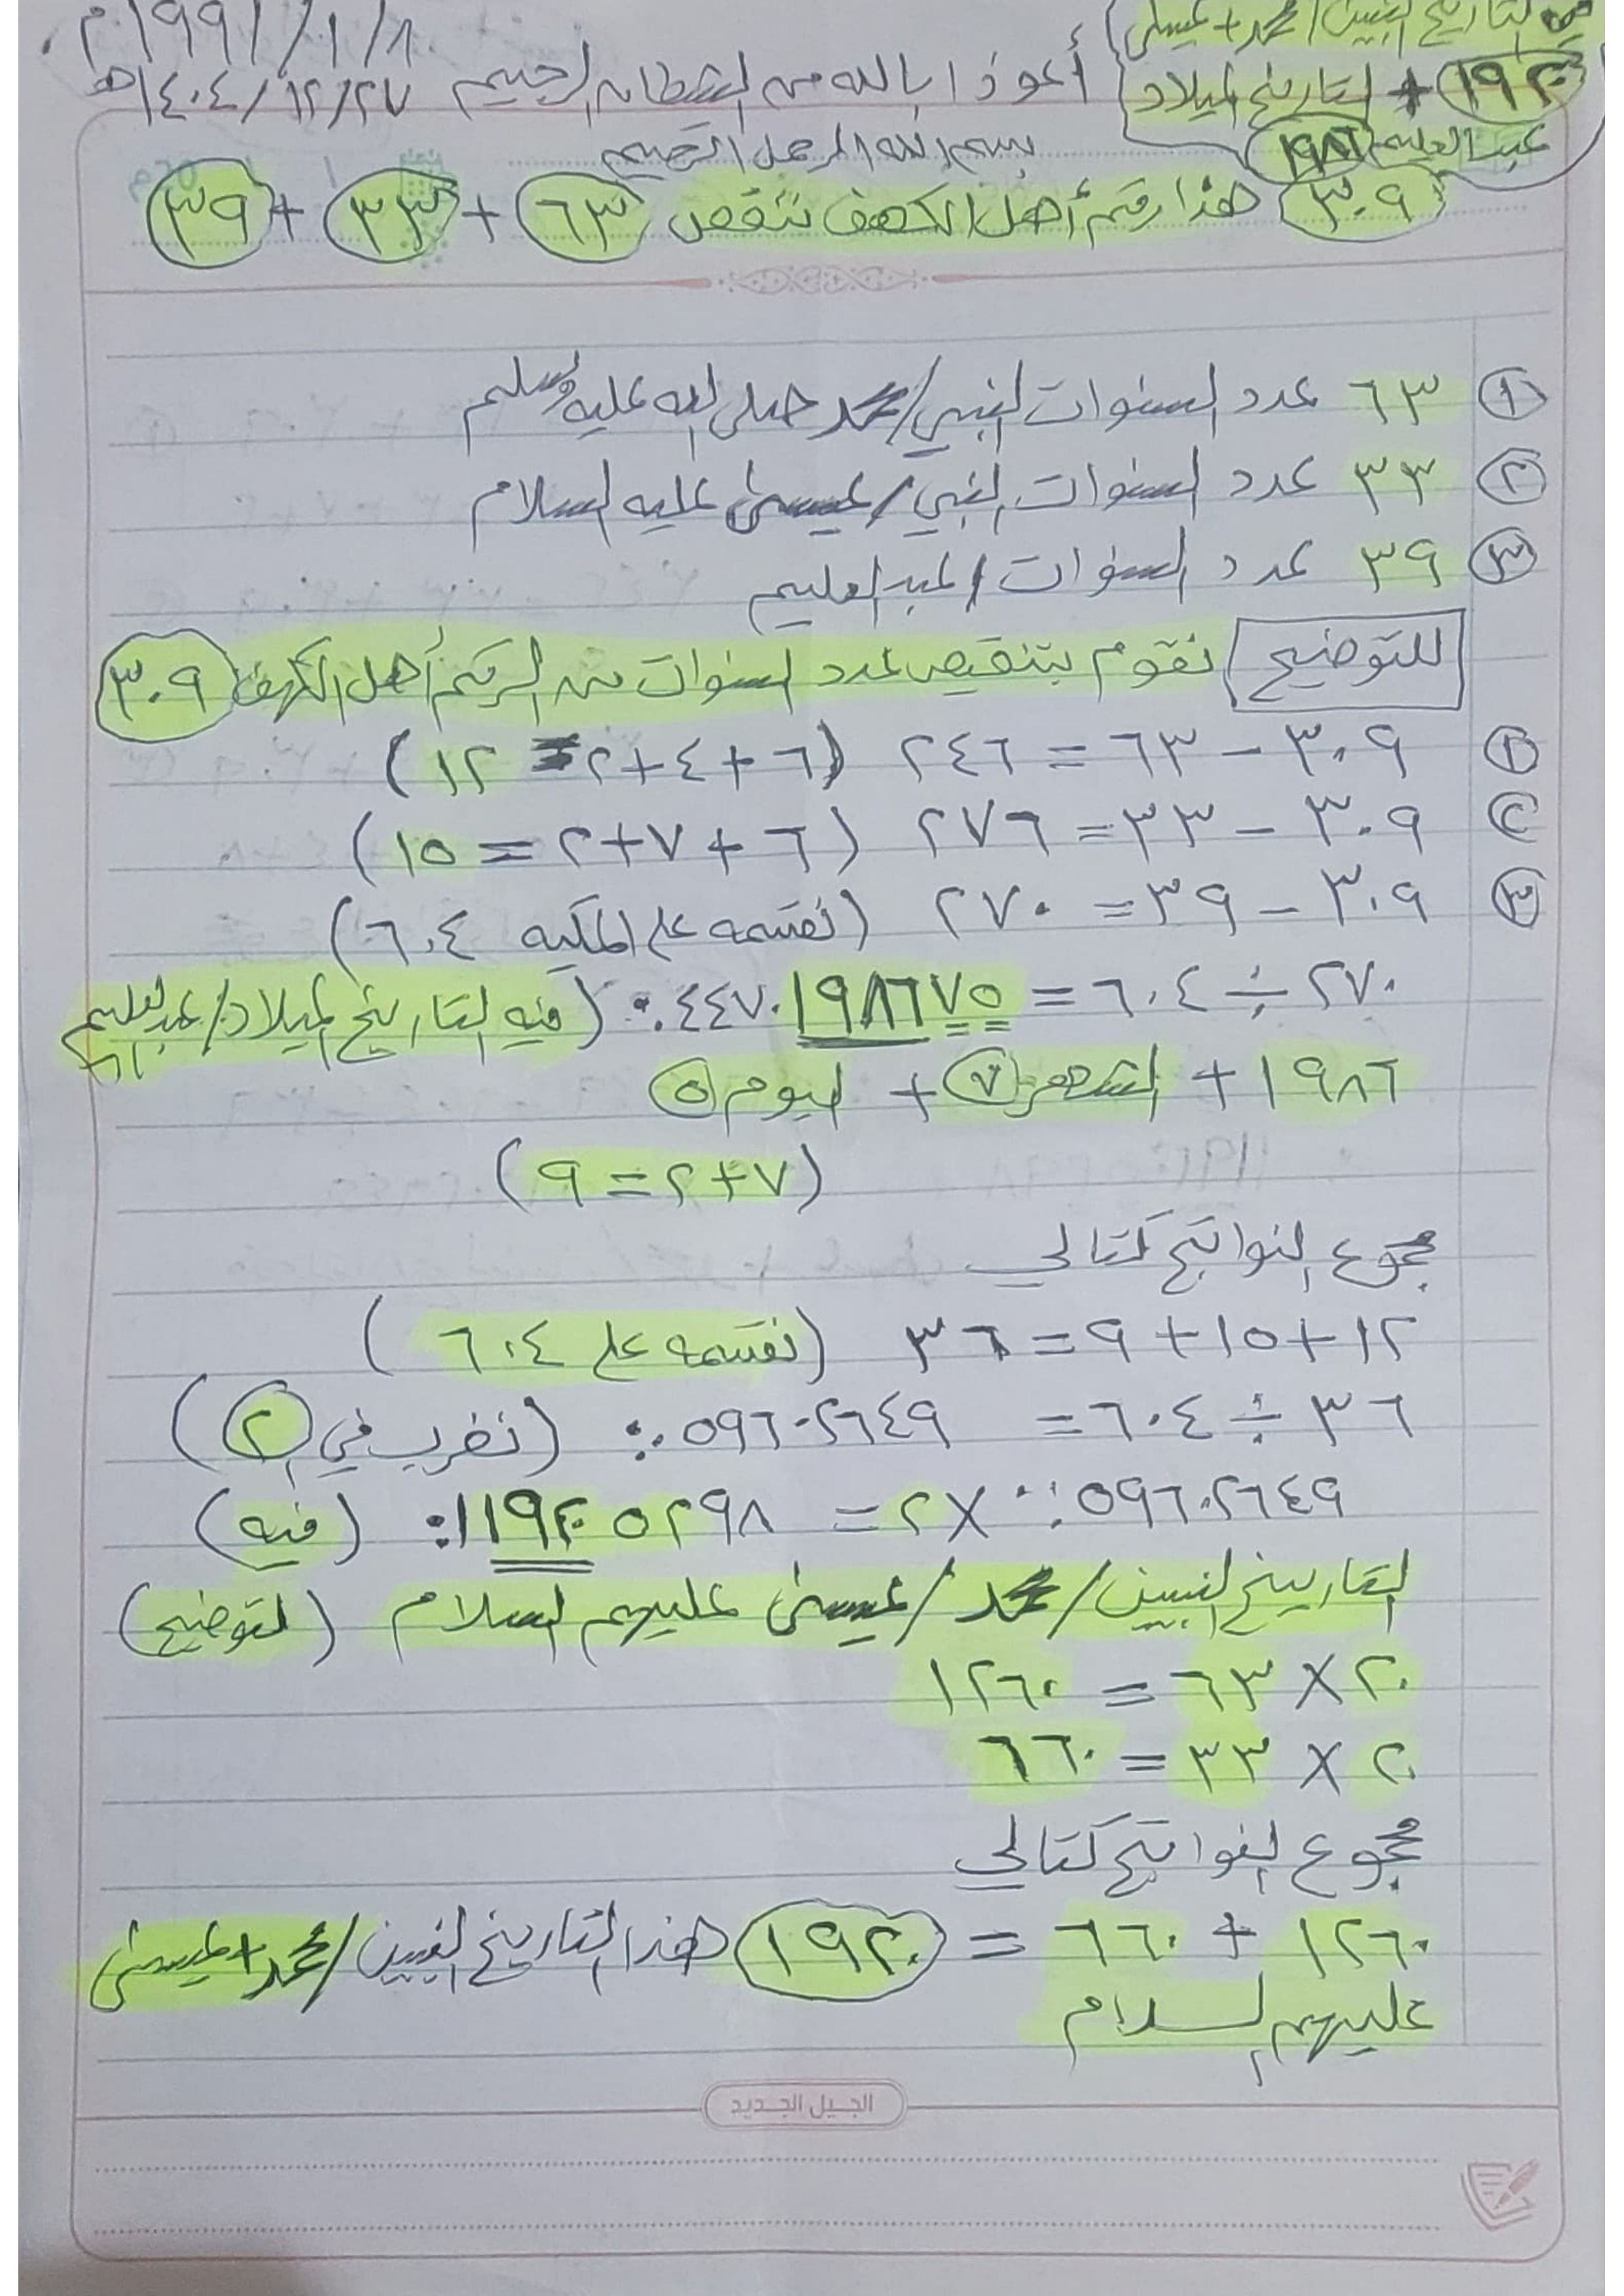 ١٩٩١/١/٨م
التاريخ النبيين/محمد+عيسى
١٩٢٠ + التاريخ الميلاد أعوذ بالله من الشيطان الرجيم ١٤٠٤/١٢/٢٧هـ
عبدالعليم ١٩٨٦ بسم الله الرحمن الرحيم
٣٠٩ هذا رقم أهل الكهف تنقص ٦٣ + ٣٣ + ٣٩
١ ٦٣ عدد السنوات النبي/محمد صلى الله عليه وسلم
٢ ٣٣ عدد السنوات النبي/عيسى عليه السلام
٣ ٣٩ عدد السنوات/عبدالعليم
للتوضيح نقوم بتنقيص عدد السنوات من الرقم أهل الكهف ٣٠٩
١ ٣٠٩ − ٦٣ = ٢٤٦ (٦+٤+٢ = ١٢)
٢ ٣٠٩ − ٣٣ = ٢٧٦ (٦+٧+٢ = ١٥)
٣ ٣٠٩ − ٣٩ = ٢٧٠ (نقسمه على المكيه ٦٠٤)
٢٧٠ ÷ ٦٠٤ = ٠.٤٤٧٠١٩٨٦٧٥ (فيه التاريخ الميلاد/عبدالعليم
١٩٨٦ + الشهر ٧ + اليوم ٥
(٧+٢=٩)
مجموع النواتج كتالي
١٢+١٥+٩=٣٦ (نقسمه على ٦٠٤)
٣٦ ÷ ٦٠٤ = ٠.٠٥٩٦٠٢٦٤٩ (نضرب في ٢)
٠.٠٥٩٦٠٢٦٤٩ × ٢ = ٠.١١٩٢٠٥٢٩٨ (فيه)
التاريخ النبيين/محمد/عيسى عليهم السلام (لتوضيح)
٢٠ × ٦٣ = ١٢٦٠
٢٠ × ٣٣ = ٦٦٠
مجموع النواتج كتالي
١٢٦٠ + ٦٦٠ = ١٩٢٠ هذا التاريخ النبيين/محمد+عيسى
عليهم لسلام
الجيل الجديد